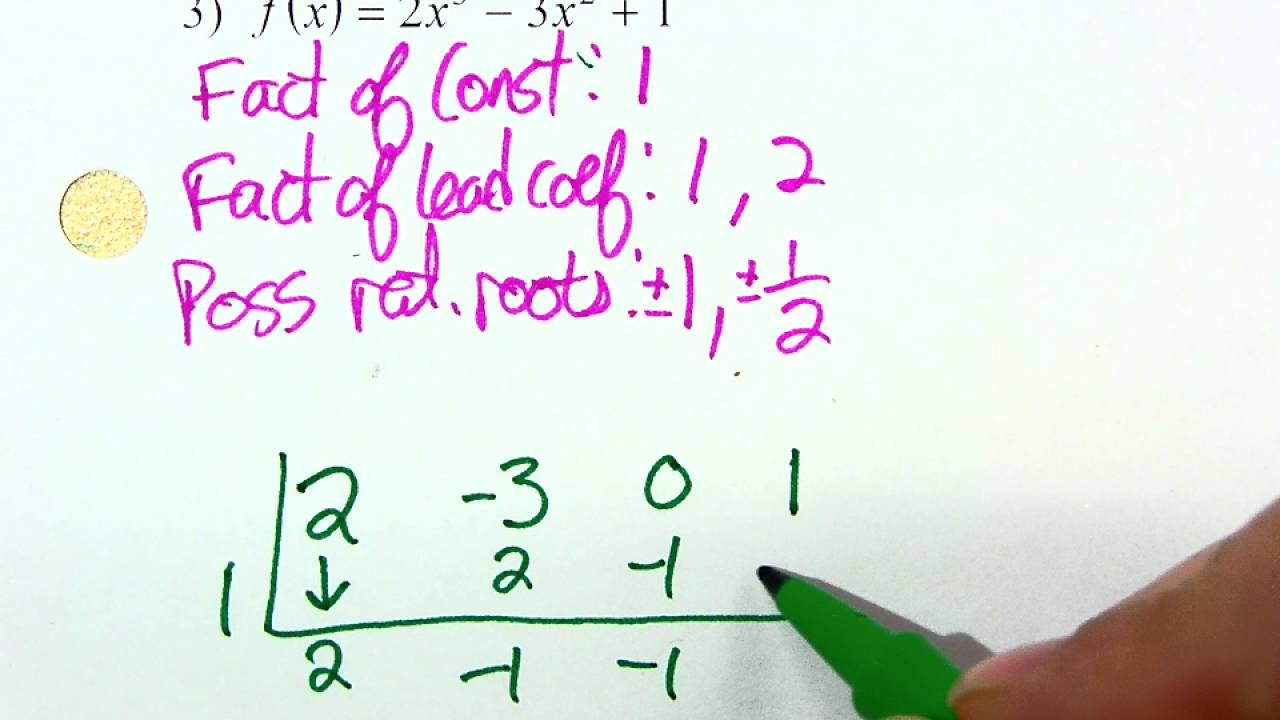 3) f(x) = 2x³ − 3x² + 1
Fact of Const: 1
Fact of lead coef: 1, 2
Poss rat. roots: ±1, ±1/2
2 -3 0 1
1 ↓ 2 -1
2 -1 -1